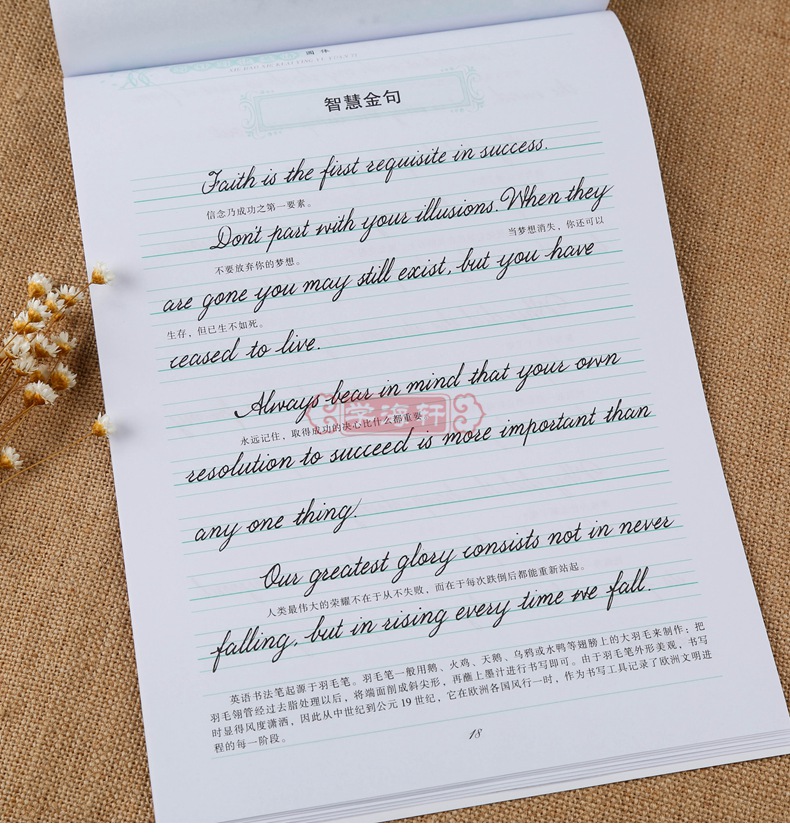 圆体
智慧金句
Faith is the first requisite in success.
信念乃成功之第一要素。
Don't part with your illusions. When they
不要放弃你的梦想。 当梦想消失，你还可以
are gone you may still exist, but you have
生存，但已生不如死。
ceased to live.
Always bear in mind that your own
永远记住，取得成功的决心比什么都重要
resolution to succeed is more important than
any one thing.
Our greatest glory consists not in never
人类最伟大的荣耀不在于从不失败，而在于每次跌倒后都能重新站起。
falling, but in rising every time we fall.
英语书法笔起源于羽毛笔。羽毛笔一般用鹅、火鸡、天鹅、乌鸦或水鸭等翅膀上的大羽毛来制作：把
羽毛翎管经过去脂处理以后，将端面削成斜尖形，再蘸上墨汁进行书写即可。由于羽毛笔外形美观，书写
时显得风度潇洒，因此从中世纪到公元 19 世纪，它在欧洲各国风行一时，作为书写工具记录了欧洲文明进
程的每一阶段。
18
学海轩